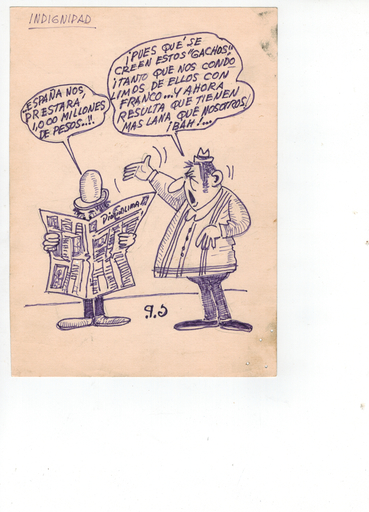 INDIGNIDAD
ESPAÑA NOS
PRESTARA
1,000 MILLONES
DE PESOS..!!
¡PUES QUÉ SE
CREEN ESTOS "GACHOS",
¡TANTO QUE NOS CONDO
LIMOS DE ELLOS CON
FRANCO...Y AHORA
RESULTA QUE TIENEN
MAS LANA QUE NOSOTROS!
¡BAH!...